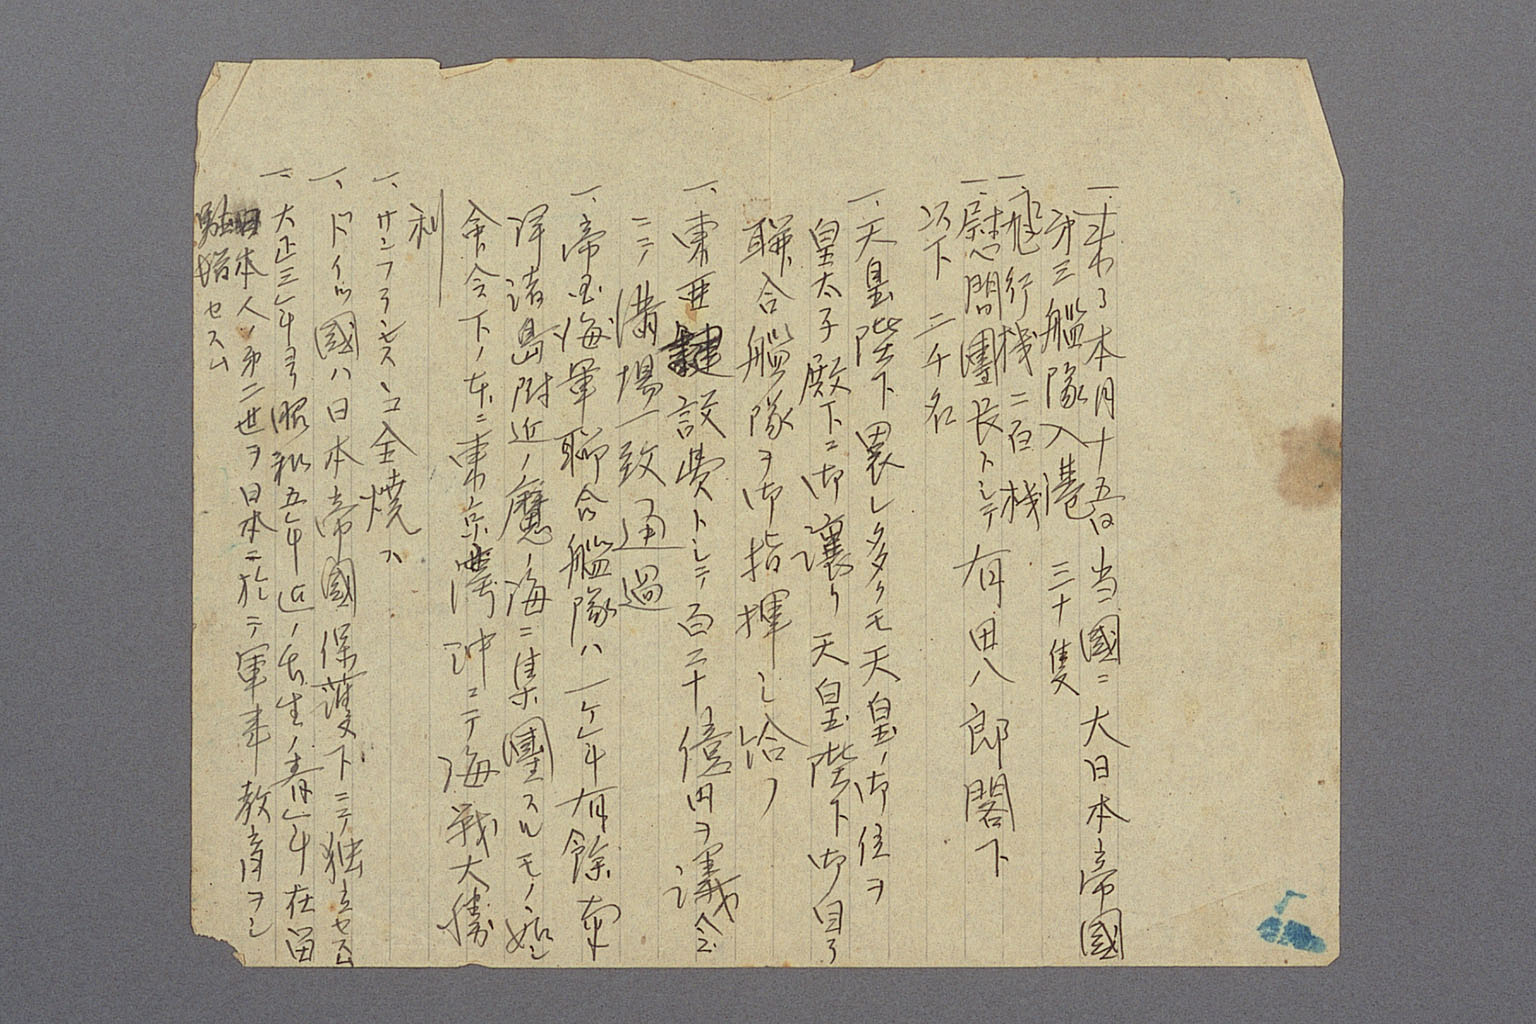 一、来ル本月十五日当國ニ大日本帝國
第三艦隊入港 三十隻
一、飛行機二百機
一、慰問團長トシテ有田八郎閣下
以下二千名
一、天皇陛下畏レ多クモ天皇ノ御位ヲ
皇太子殿下ニ御讓リ天皇陛下御自ラ
聯合艦隊ヲ御指揮シ給フ
一、東亜建設費トシテ百二十億円ヲ議会
ニテ満場一致通過
一、帝国海軍聯合艦隊ハ一ヶ年有餘南
洋諸島附近ノ魔ノ海ニ集團スルモノノ如シ
命令下ノ本ニ東京湾沖ニテ海戦大勝
利
一、サンフランセスコ全焼ス
一、ドイツ國ハ日本帝國保護下ニテ独立セスム
一、大正三年ヨリ昭和五年迄ノ出生ノ青年在留
日本人ノ第二世ヲ日本ニ於テ軍事教育ヲシ
セスム